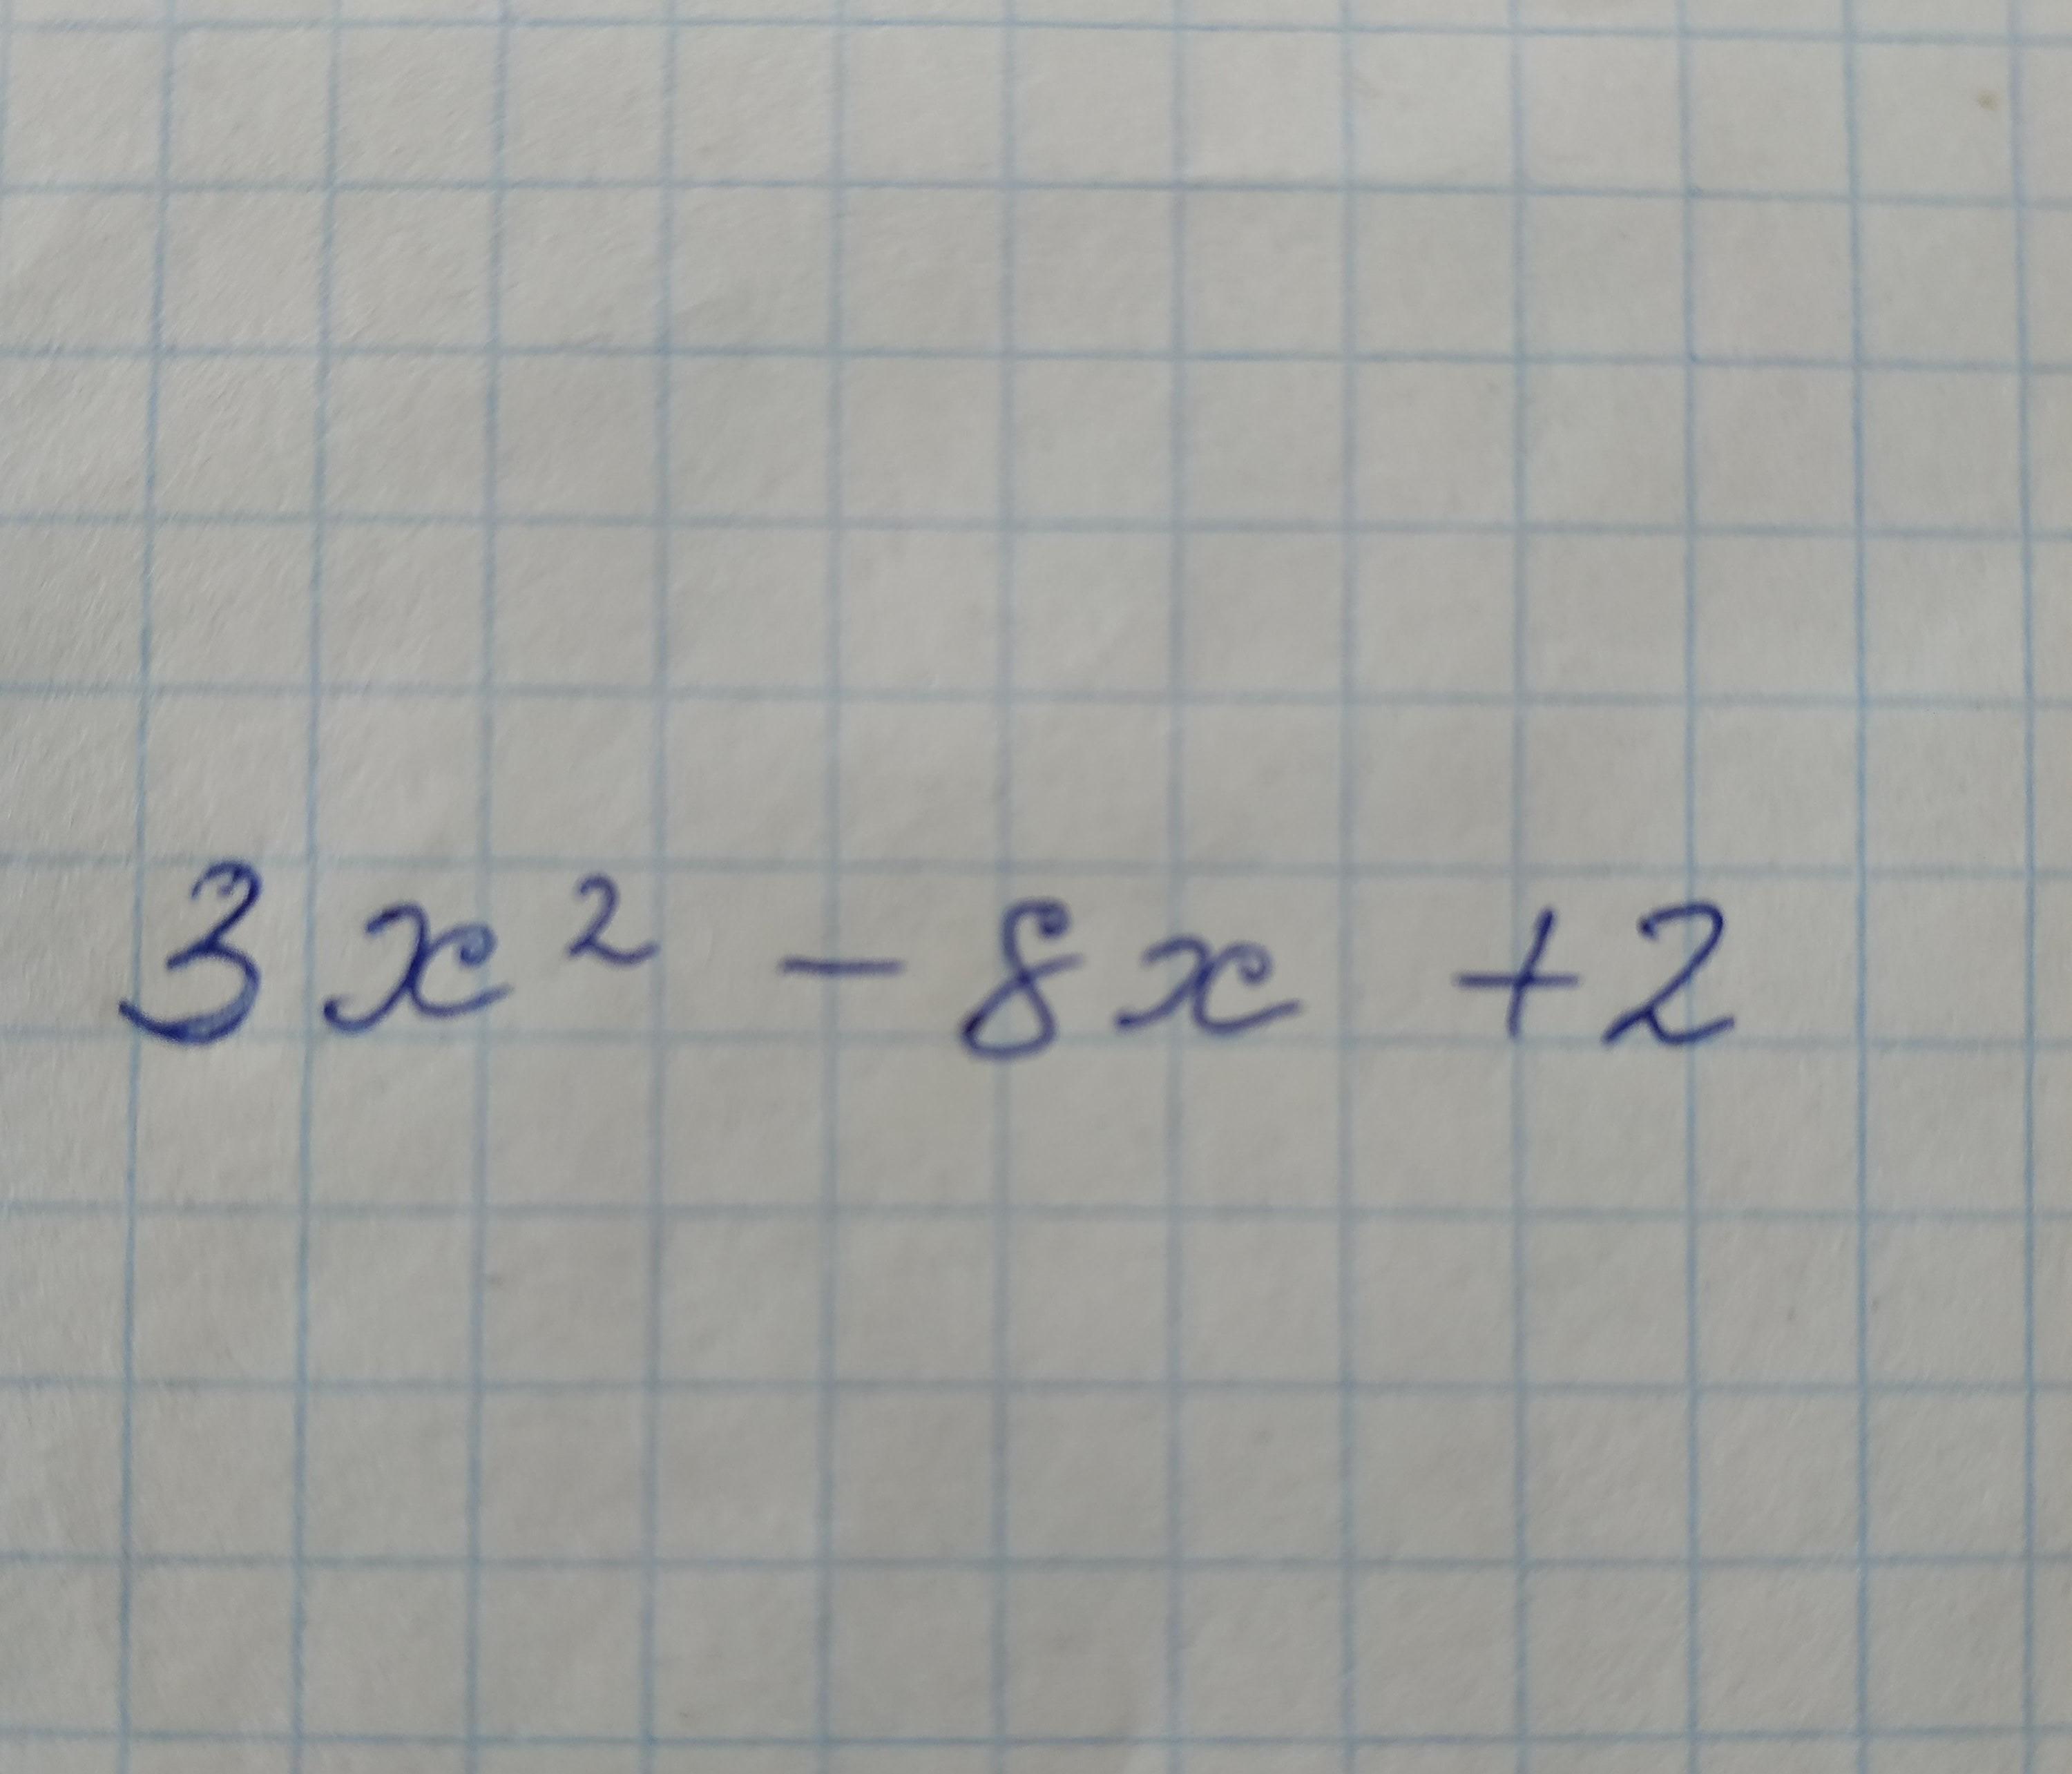 3x² - 8x + 2